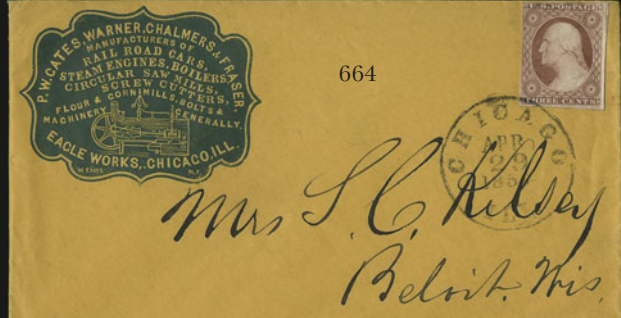 P.W. GATES, WARNER, CHALMERS & FRASER.
MANUFACTURERS OF
RAIL ROAD CARS,
STEAM ENGINES, BOILERS,
CIRCULAR SAW MILLS,
SCREW CUTTERS,
FLOUR & CORN MILLS, BOLTS &
MACHINERY GENERALLY.
EAGLE WORKS, CHICAGO, ILL.
N.Y.
664
U.S. POSTAGE
THREE CENTS
CHICAGO
APR
Mrs S. C. Kelsey
Beloit. Wis.